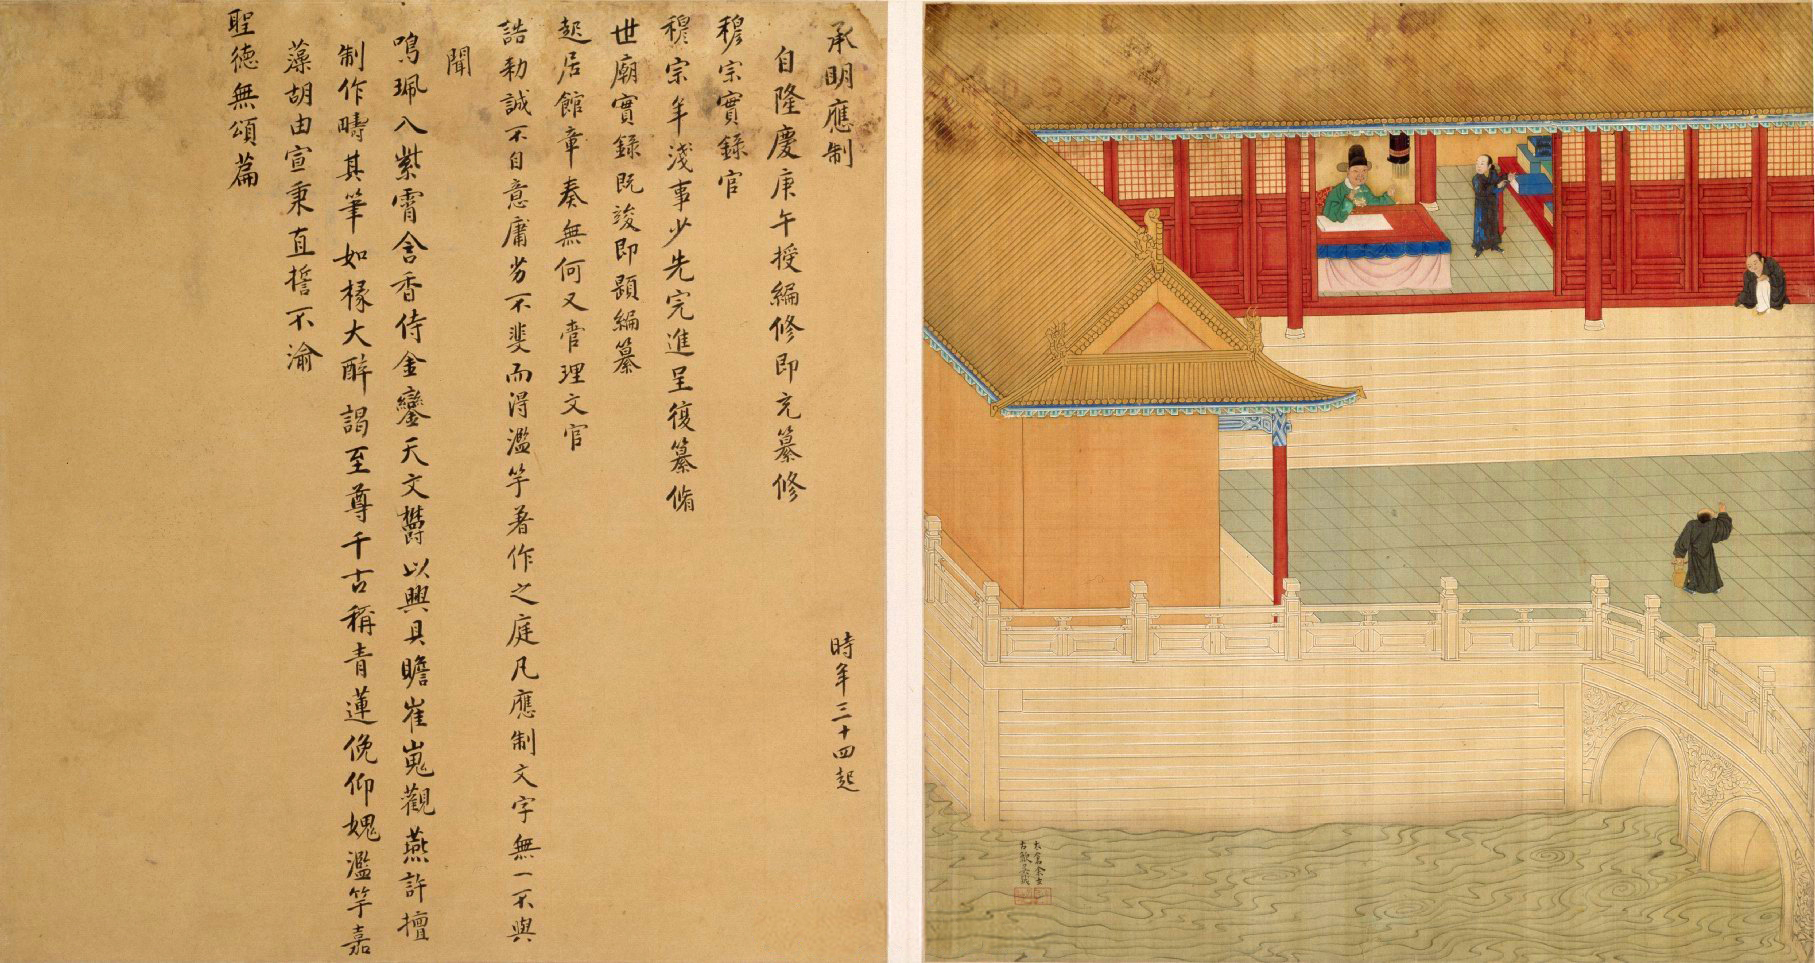 承明應制
時年三十四起
自隆慶庚午授編修即充纂修
穆宗實錄官
穆宗年淺事少先完進呈復纂脩
世廟實錄既竣即題編纂
起居館章奏無何又管理文官
誥勑誠不自意庸劣不斐而得濫竽著作之庭凡應制文字無一不與
聞
鳴珮入紫霄含香侍金鑾天文欝以興具瞻崔嵬觀燕許擅
制作時其筆如椽大醉謁至尊千古稱青蓮俛仰媿濫竽嘉
藻胡由宣秉直誓不渝
聖德無頌篇